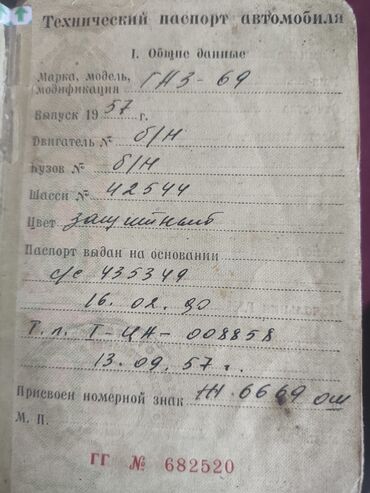 Технический паспорт автомобиля
I. Общие данные
Марка, модель, ГАЗ-69
модификация
Выпуск 1957 г.
Двигатель № б/н
Кузов № б/н
Шасси № 42544
Цвет защитный
Паспорт выдан на основании
с/с 435349
16. 02. 90
Т. п. Т-ЦН- 008858
13. 09. 57 г.
Присвоен номерной знак 6669 ОШ
М. П.
ГГ № 682520